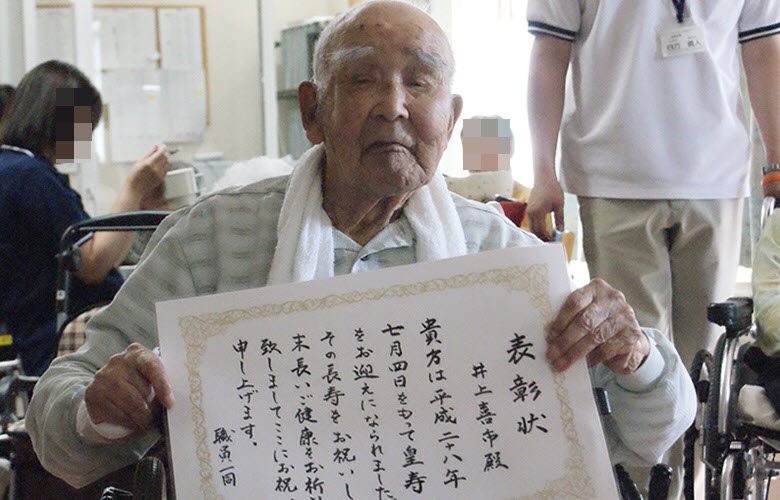 表彰状
井上喜市殿
貴方は平成二八年
七月四日をもって皇寿
をお迎えになられました
その長寿をお祝いし
末長いご健康をお祈り
致しましてここにお祝い
申し上げます。
職員一同